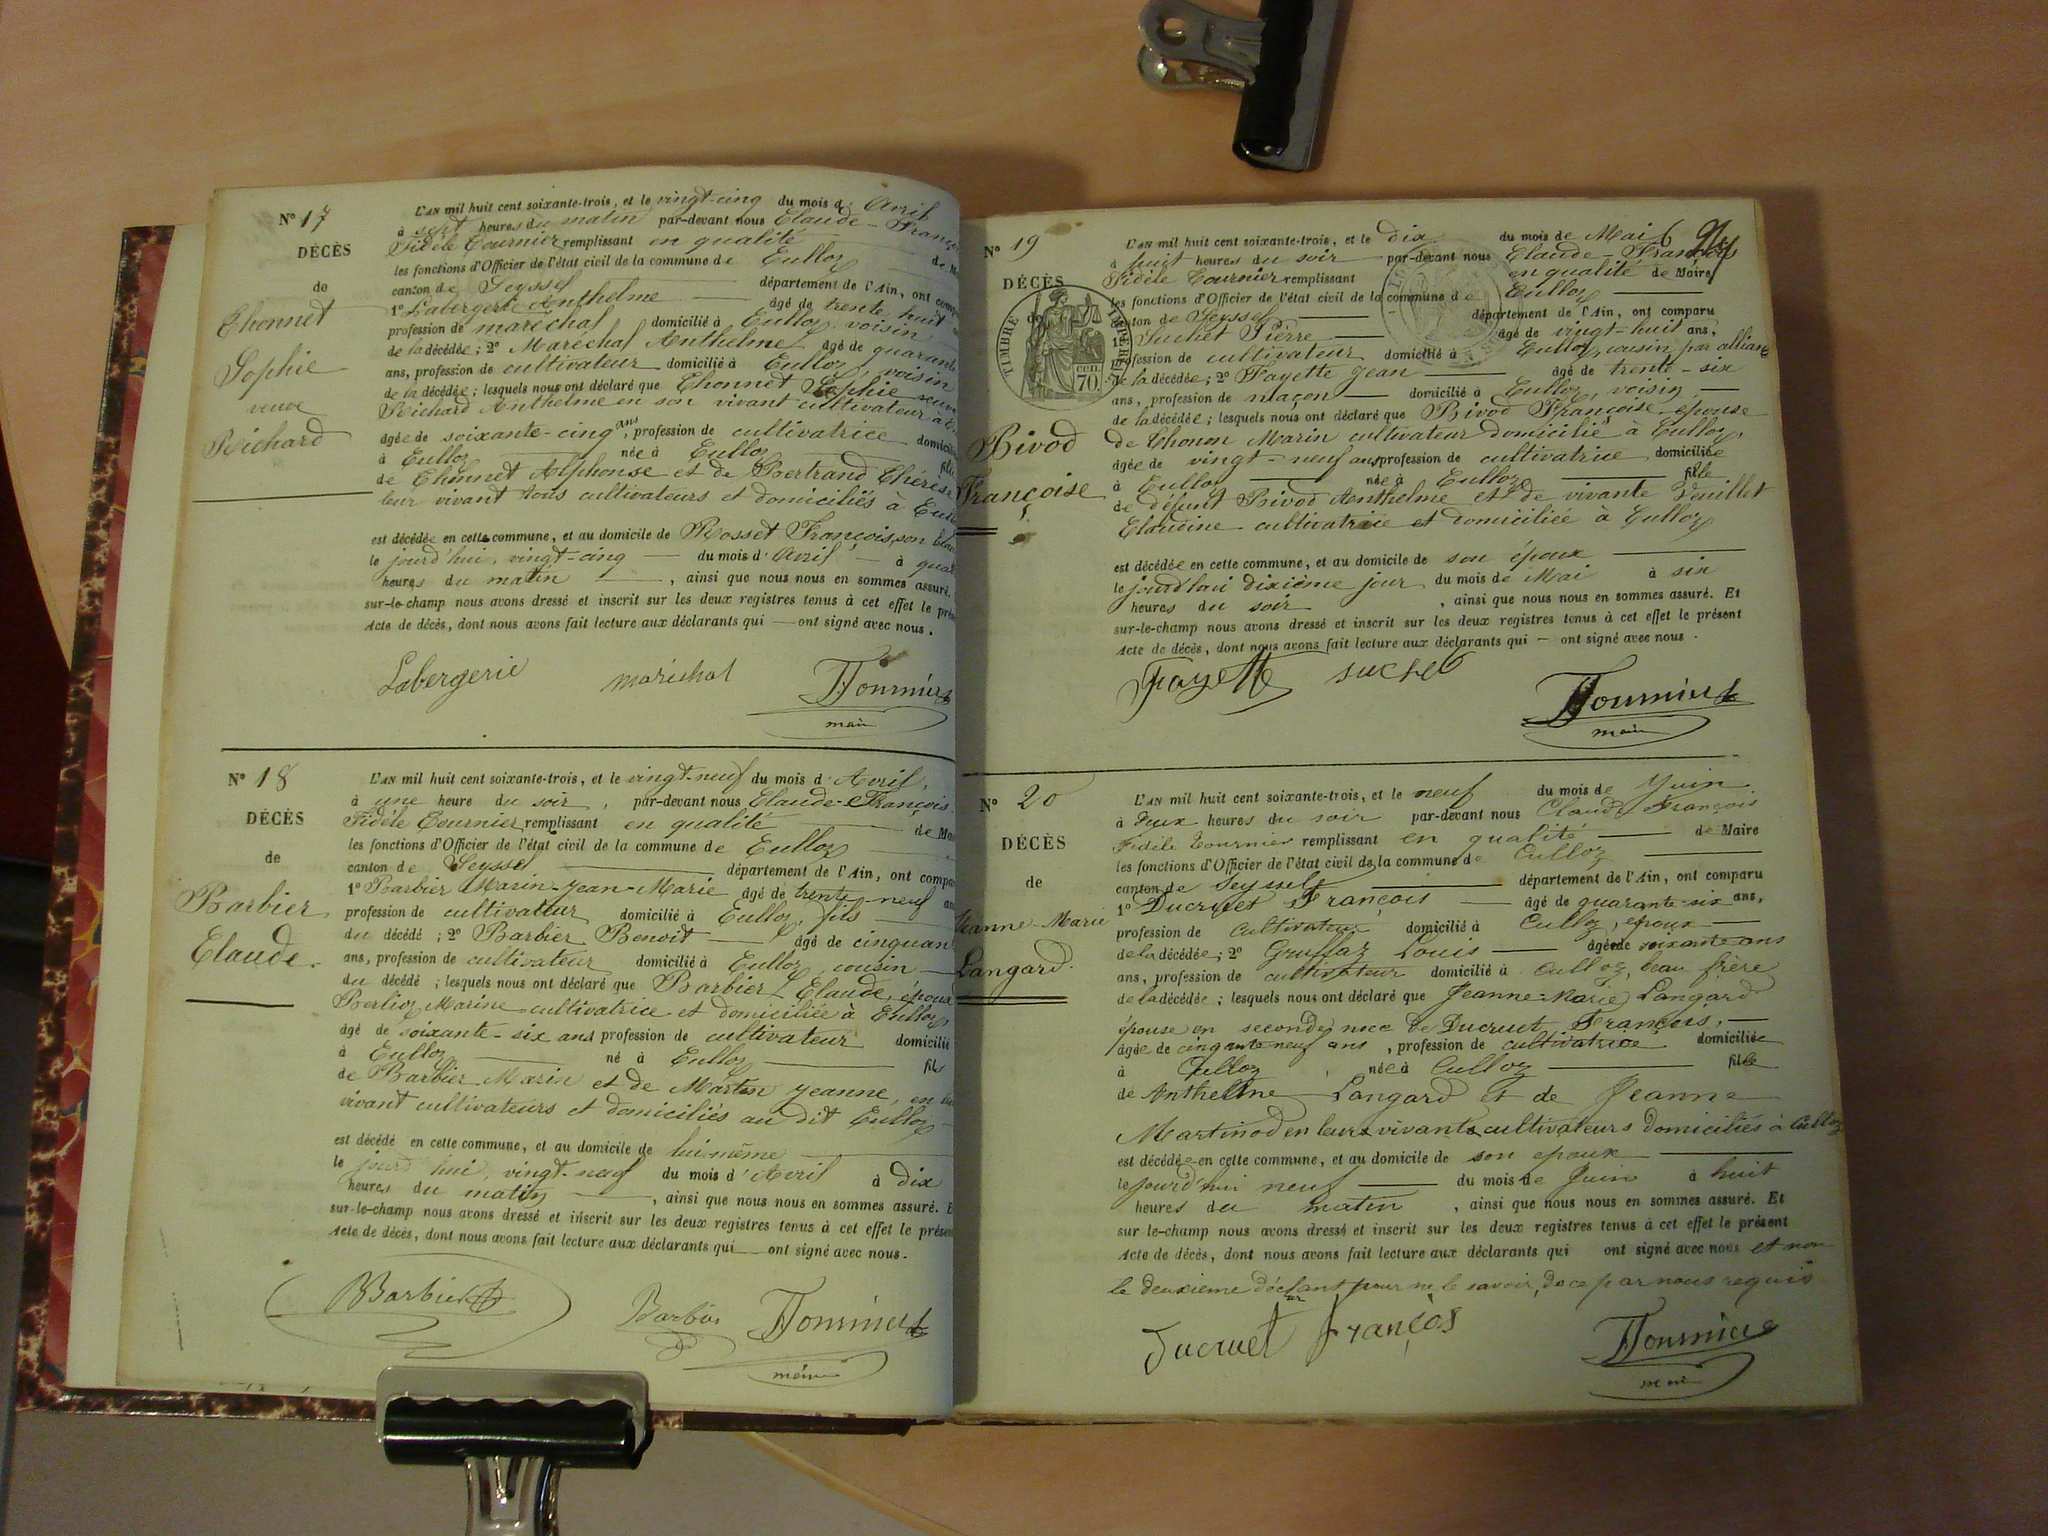 N° 17
DÉCÈS
de
Chonnet
Sophie
veuve
Richard
L'AN mil huit cent soixante-trois, et le vingt-cinq du mois d'Avril
à sept heures du matin par-devant nous Claude-Franç
Fidèle Tournier remplissant en qualité de M
les fonctions d'Officier de l'état civil de la commune de Culloz
canton de Seyssel département de l'Ain, ont comp
1° Labergerie Anthelme âgé de trente huit
profession de maréchal domicilié à Culloz, voisin
de la décédée ; 2° Maréchal Anthelme âgé de quarante
ans, profession de cultivateur domicilié à Culloz, voisin
de la décédée ; lesquels nous ont déclaré que Chonnet Sophie veuve
Richard Anthelme en son vivant cultivateur à C
agée de soixante-cinq ans, profession de cultivatrice domicili
à Culloz née à Culloz fille
de Chonnet Alphonse et de Bertrand Thérèse
leur vivant tous cultivateurs et domiciliés à Cul
est décédée en cette commune, et au domicile de Rosset François, son
le jourd'hui, vingt-cinq du mois d'Avril à qua
heures du matin , ainsi que nous nous en sommes assuré.
sur-le-champ nous avons dressé et inscrit sur les deux registres tenus à cet effet le prés
Acte de décès, dont nous avons fait lecture aux déclarants qui — ont signé avec nous.
Labergerie maréchal Tournier
maire
N° 18
DÉCÈS
de
Barbier
Claude.
L'AN mil huit cent soixante-trois, et le vingt-neuf du mois d'Avril,
à une heure du soir, par-devant nous Claude-François
Fidèle Tournier remplissant en qualité de Ma
les fonctions d'Officier de l'état civil de la commune de Culloz
canton de Seyssel département de l'Ain, ont compa
1° Barbier Marin-Jean-Marie âgé de trente-neuf an
profession de cultivateur domicilié à Culloz, fils
du décédé ; 2° Barbier Benoit âgé de cinquan
ans, profession de cultivateur domicilié à Culloz, cousin
du décédé ; lesquels nous ont déclaré que Barbier Claude, époux
Berlioz Marine cultivatrice et domiciliée à Culloz,
âgé de soixante-six ans profession de cultivateur domicilié
à Culloz né à Culloz fils
de Barbier Marin et de Martin Jeanne, en
vivant cultivateurs et domiciliés au dit Culloz
est décédé en cette commune, et au domicile de lui-même
le jourd'hui, vingt-neuf du mois d'Avril à dix
heures du matin , ainsi que nous nous en sommes assuré. E
sur-le-champ nous avons dressé et inscrit sur les deux registres tenus à cet effet le présen
Acte de décès, dont nous avons fait lecture aux déclarants qui — ont signé avec nous.
Barbier Barbier Tournier
maire
N° 19
DÉCÈS
de
TIMBRE IMPERIAL
70 CEN
Bivod
Françoise
L'AN mil huit cent soixante-trois, et le dix du mois de Mai
à huit heures du soir par-devant nous Claude-François
Fidèle Tournier remplissant en qualité de Maire
les fonctions d'Officier de l'état civil de la commune de Culloz
canton de Seyssel département de l'Ain, ont comparu
1° Suchet Pierre âgé de vingt-huit ans,
profession de cultivateur domicilié à Culloz, cousin par allian
de la décédée ; 2° Fayette Jean âgé de trente-six
ans, profession de maçon domicilié à Culloz, voisin
de la décédée ; lesquels nous ont déclaré que Bivod Françoise épouse
de Chonon Marin cultivateur domiciliés à Culloz,
agée de vingt-neuf ans profession de cultivatrice domiciliée
à Culloz née à Culloz fille
de défunt Bivod Anthelme et de vivante Venillet
Claudine cultivatrice et domiciliée à Culloz
est décédée en cette commune, et au domicile de son époux
le jourd'hui dixième jour du mois de Mai à six
heures du soir , ainsi que nous nous en sommes assuré. Et
sur-le-champ nous avons dressé et inscrit sur les deux registres tenus à cet effet le présent
Acte de décès, dont nous avons fait lecture aux déclarants qui — ont signé avec nous.
Fayette suchet
Tournier
maire
N° 20
DÉCÈS
de
Jeanne-Marie
Langard.
L'AN mil huit cent soixante-trois, et le neuf du mois de Juin
à deux heures du soir par-devant nous Claude François
Fidèle Tournier remplissant en qualité de Maire
les fonctions d'Officier de l'état civil de la commune de Culloz
canton de Seyssel département de l'Ain, ont comparu
1° Ducruet François âgé de quarante-six ans,
profession de cultivateur domicilié à Culloz, époux
de la décédée ; 2° Gruffaz Louis âgé de soixante ans
ans, profession de cultivateur domicilié à Culloz, beau frère
de la décédée ; lesquels nous ont déclaré que Jeanne-Marie Langard
épouse en seconde noce de Ducruet François,
âgée de cinquante neuf ans, profession de cultivatrice domiciliée
à Culloz, née à Culloz fille
de Anthelme Langard et de Jeanne
Martinod en leurs vivants cultivateurs domiciliés à Culloz
est décédée en cette commune, et au domicile de son époux
le jourd'hui neuf du mois de Juin à huit
heures du matin , ainsi que nous nous en sommes assuré. Et
sur-le-champ nous avons dressé et inscrit sur les deux registres tenus à cet effet le présent
Acte de décès, dont nous avons fait lecture aux déclarants qui ont signé avec nous et non
le deuxième déclarant pour ne le savoir, de ce par nous requis
Ducruet François Tournier
maire